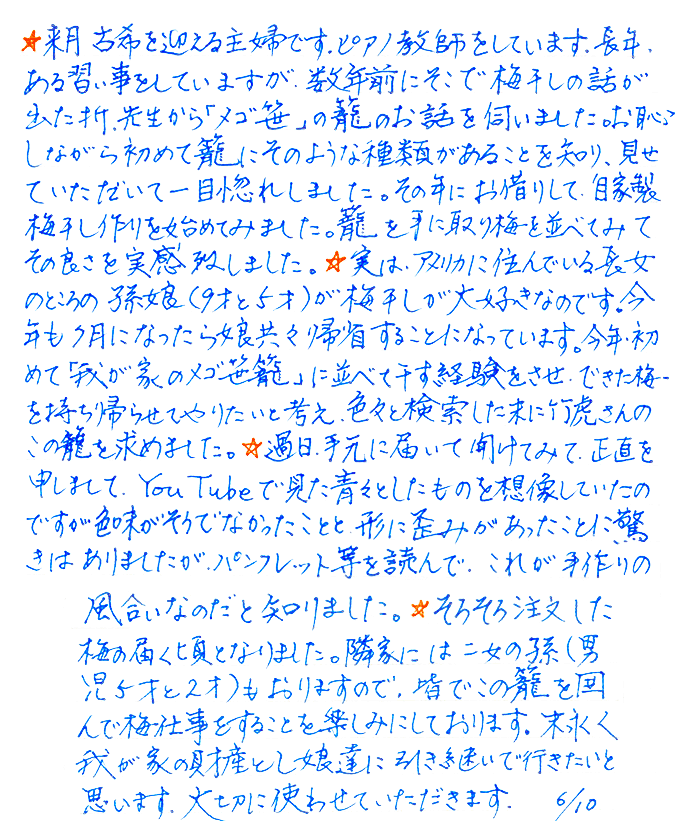 ☆来月 古希を迎える主婦です。ピアノ教師をしています。長年、
ある習い事をしていますが、数年前にそこで梅干しの話が
出た折、先生から「メゴ笹」の籠のお話を伺いました。お恥ずか
しながら初めて籠にそのような種類があることを知り、見せ
ていただいて一目惚れしました。その年にお借りして、自家製
梅干し作りを始めてみました。籠を手に取り梅を並べてみて
その良さを実感致しました。☆実は、アメリカに住んでいる長女
のところの孫娘(9才と5才)が梅干しが大好きなのです。今
年も7月になったら娘共々帰省することになっています。今年、初
めて「我が家のメゴ笹籠」に並べて干す経験をさせ、できた梅干
を持ち帰らせてやりたいと考え、色々と検索した末に竹虎さんの
この籠を求めました。☆過日、手元に届いて開けてみて、正直を
申しまして、YouTubeで見た青々としたものを想像していたの
ですが色味がそうでなかったことと、形に歪みがあったことに驚
きはありましたが、パンフレット等を読んで、これが手作りの
風合いなのだと知りました。☆そろそろ注文した
梅の届く頃となりました。隣家には二女の孫(男
児5才と2才)もおりますので、皆でこの籠を囲
んで梅仕事をすることを楽しみにしております。末永く
我が家の財産とし娘達に引き継いで行きたいと
思います。大切に使わせていただきます。 6/10